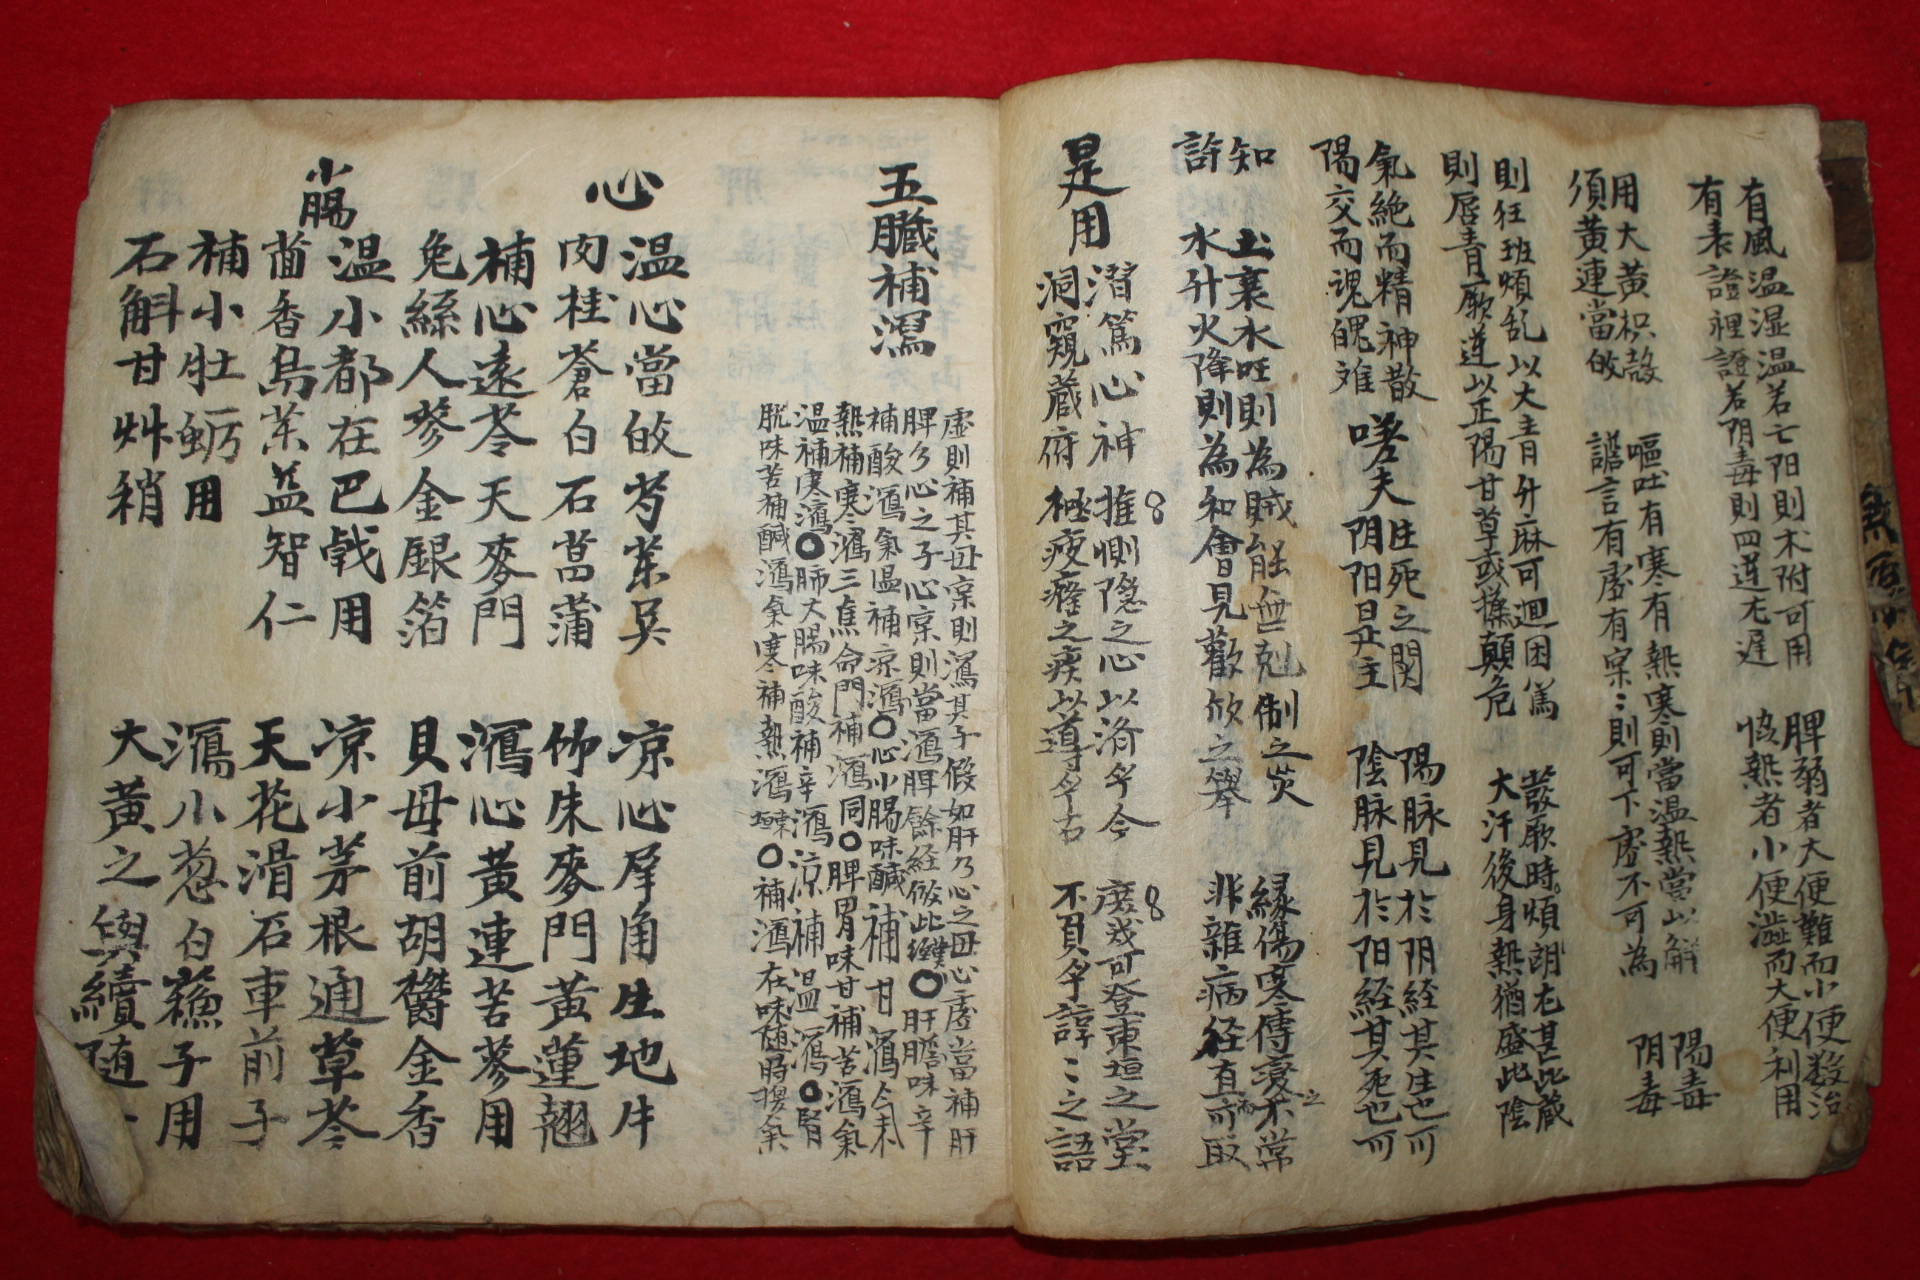 有風温湿温若亡阳則朮附可用
有表證裡證若阴毒則四逆尤遅
脾弱者大便難而小便数治
恊熱者小便澁而大便利用
用大黄枳殼
須黄連當攸
嘔吐有寒有熱寒則當温熱當以解
譫言有虚有宲〻則可下虚不可為
陽毒
阴毒
則狂班煩乱以大青升麻可迴困篤
則唇青厥逆以正陽甘草或撫顛危
發厥時煩朗尤甚此蔵
大汗後身熱猶盛此陰
氣絶而精神散
陽交而魂魄难
嗟夫
生死之関
阴阳是主
陽脉見於阴経其生也可
陰脉見於阳経其死也可
知
許
土衰水旺則為賊能無剋制之灾
水升火降則為和會見歡欣之舉
縁傷寒傳變不常
非雜病径直可取
是用
潜篤心神推惻隐之心以济乎今
洞窺蔵府極疲癃之疾以導乎古
庶或可登東垣之堂
不負乎諄〻之語
五臓補瀉
虚則補其母宲則瀉其子假如肝乃心之母心虚當補肝
脾乃心之子心宲則當瀉脾餘経倣此〇肝膽味辛
補酸瀉氣温補凉瀉〇心小腸味醎補甘瀉
熱補寒瀉三焦命門補瀉同〇脾胃味甘補苦瀉氣
温補寒瀉〇肺大腸味酸補辛瀉凉補温瀉〇腎
胱味苦補醎瀉氣寒補熱瀉〇補瀉在味随時換氣
心
温心當攸芍茱吴
肉桂蒼白石菖蒲
補心遠苓天麥門
兔絲人蔘金銀箔
凉心犀角生地牛
竹朱麥門黄蓮翹
瀉心黄連苦蔘用
貝母前胡欝金香
小膓
温小都在巴戟用
茴香烏茱益智仁
補小牡蛎用
石斛甘艸稍
凉小茅根通草苓
天花滑石車前子
瀉小葱白蘓子用
大黄之與續随